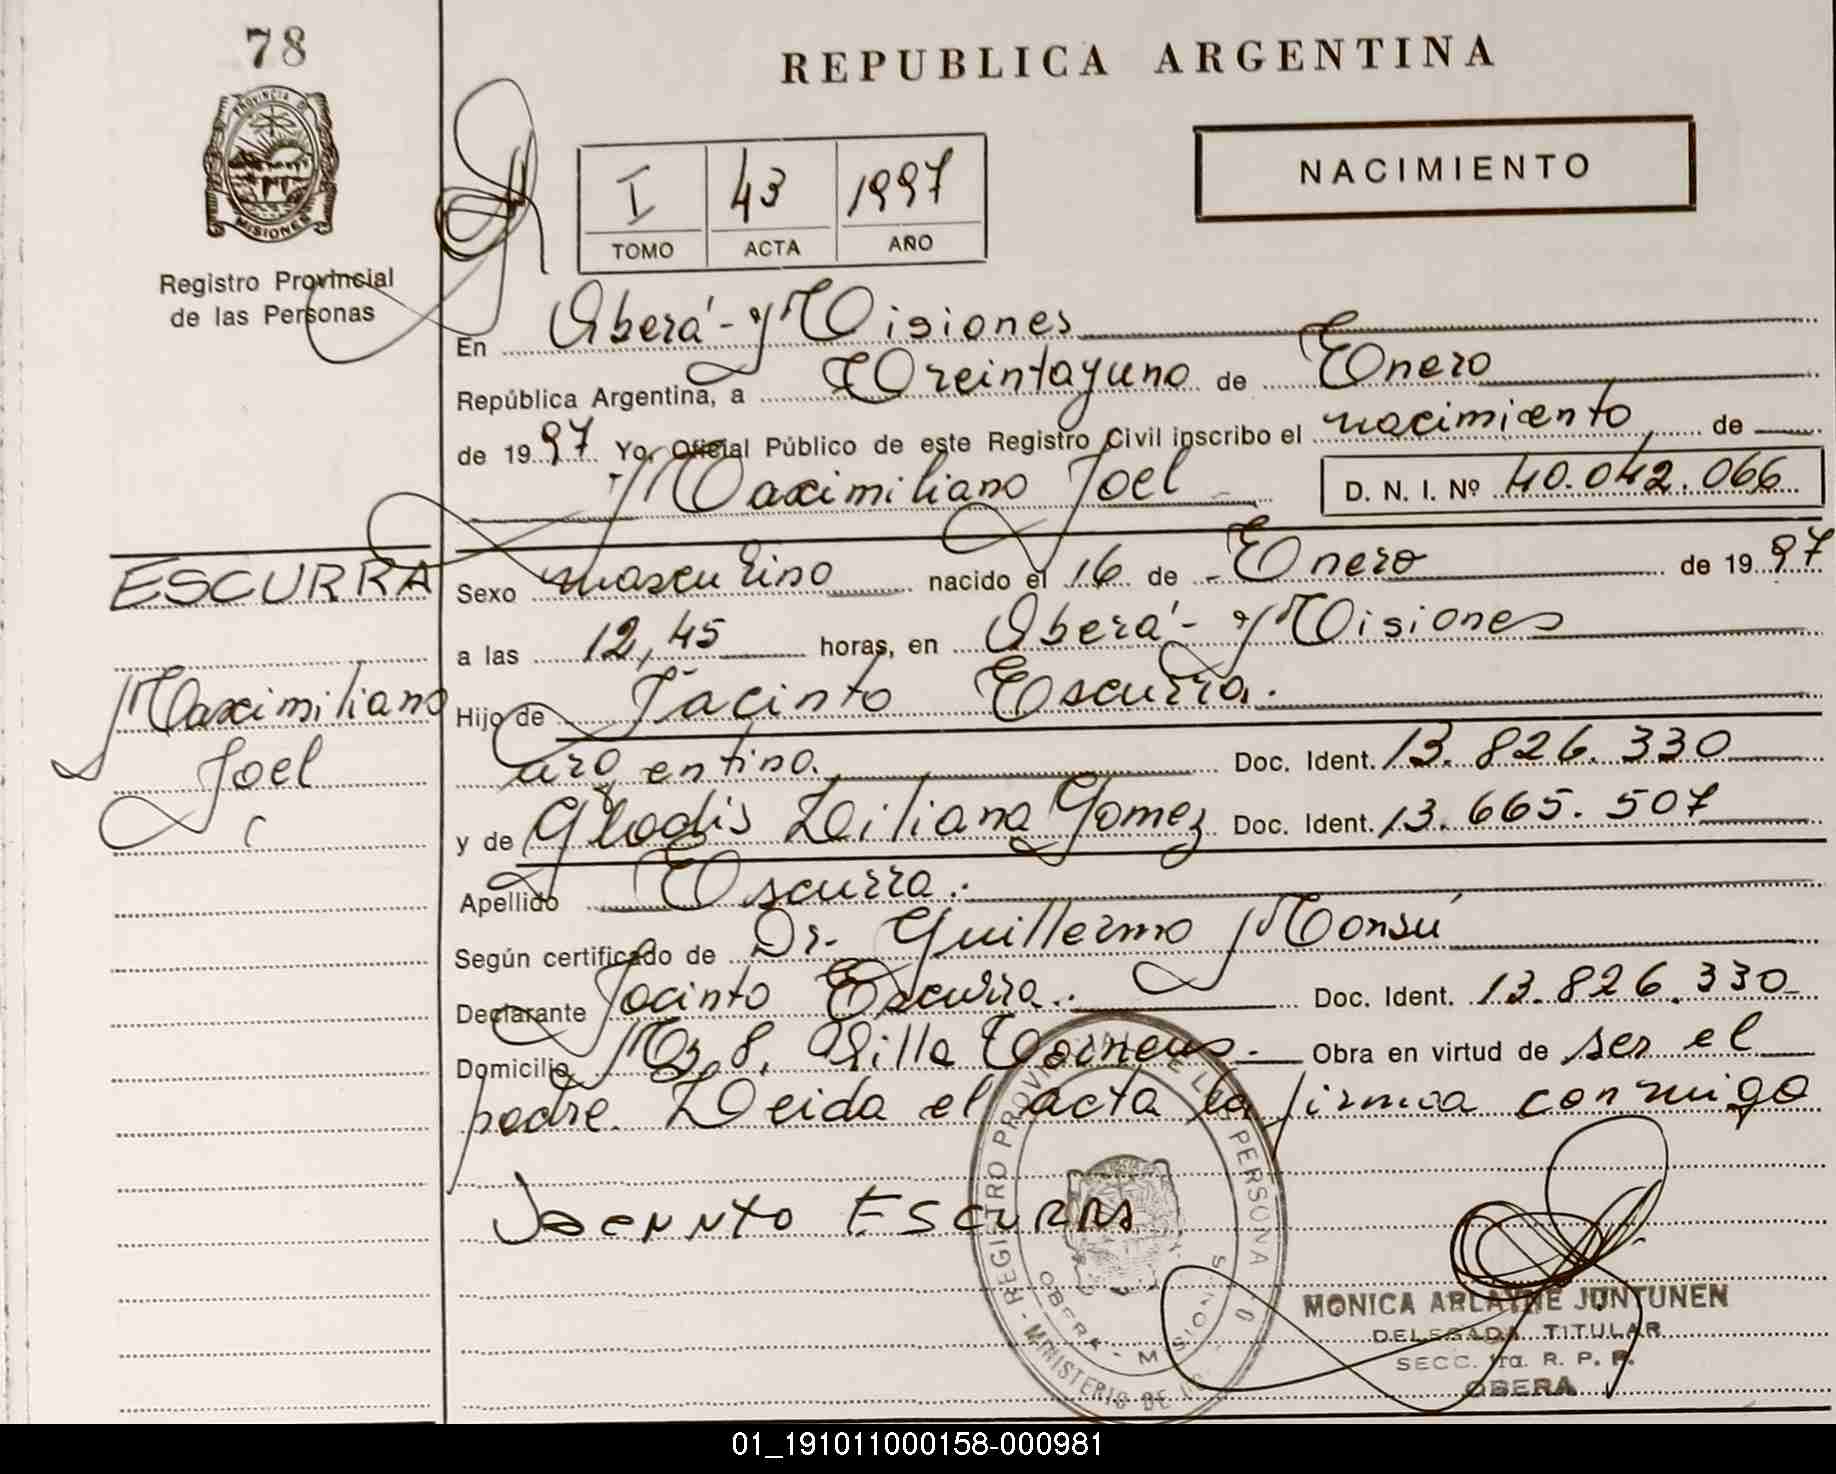 78
REPUBLICA ARGENTINA
PROVINCIA D
MISIONES
Registro Provincial
de las Personas
I 43 1997
TOMO ACTA AÑO
NACIMIENTO
En Oberá - Misiones
República Argentina, a Treintayuno de Enero
de 1997 Yo, Oficial Público de este Registro Civil inscribo el nacimiento, de
Maximiliano Joel D. N. I. Nº 40.042.066
ESCURRA
Maximiliano
Joel
Sexo masculino nacido el 16 de Enero de 1997
a las 12,45 horas, en Oberá - Misiones
Hijo de Jacinto Escurra.
argentino. Doc. Ident. 13.826.330
y de Gladis Liliana Gomez Doc. Ident. 13.665.507
Apellido Escurra.
Según certificado de Dr. Guillermo Monsú
Declarante Jacinto Escurra. Doc. Ident. 13.826.330
Domicilio Mz 8, Villa Obra en virtud de ser el
padre. Leida el acta la firma conmigo
Jacinto ESCURRA
REGISTRO PROVINCIAL DE LAS PERSONAS
OBERA - MISIONES
MINISTERIO DE
MONICA ARLAYNE JUNTUNEN
DELEGADA TITULAR
SECC. 1ra. R. P. P.
OBERA
01_191011000158-000981